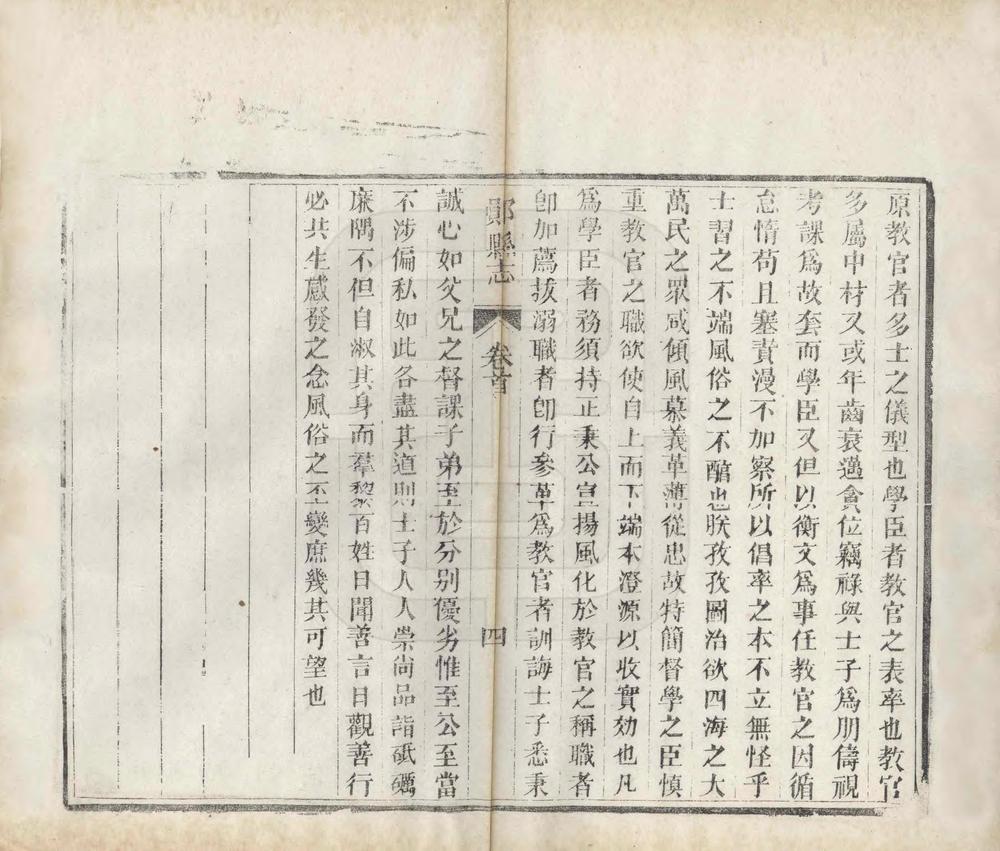 原教官者多士之儀型也學臣者教官之表率也教官
多屬中材又或年齒衰邁貪位竊祿與士子爲朋儔視
考課爲故套而學臣又但以衡文爲事任教官之因循
怠惰苟且塞責漫不加察所以倡率之本不立無怪乎
士習之不端風俗之不醇也朕孜孜圖治欲四海之大
萬民之眾咸傾風慕義革薄從忠故特簡督學之臣慎
重教官之職欲使自上而下端本澄源以收實効也凡
爲學臣者務須持正秉公宣揚風化於教官之稱職者
卽加薦拔溺職者卽行參革爲教官者訓誨士子悉秉
鄖縣志 卷首 四
誠心如父兄之督課子弟至於分别優劣惟至公至當
不涉偏私如此各盡其道則士子人人崇尚品詣砥礪
廉隅不但自淑其身而羣黎百姓日聞善言日觀善行
必共生感發之念風俗之丕變庶幾其可望也